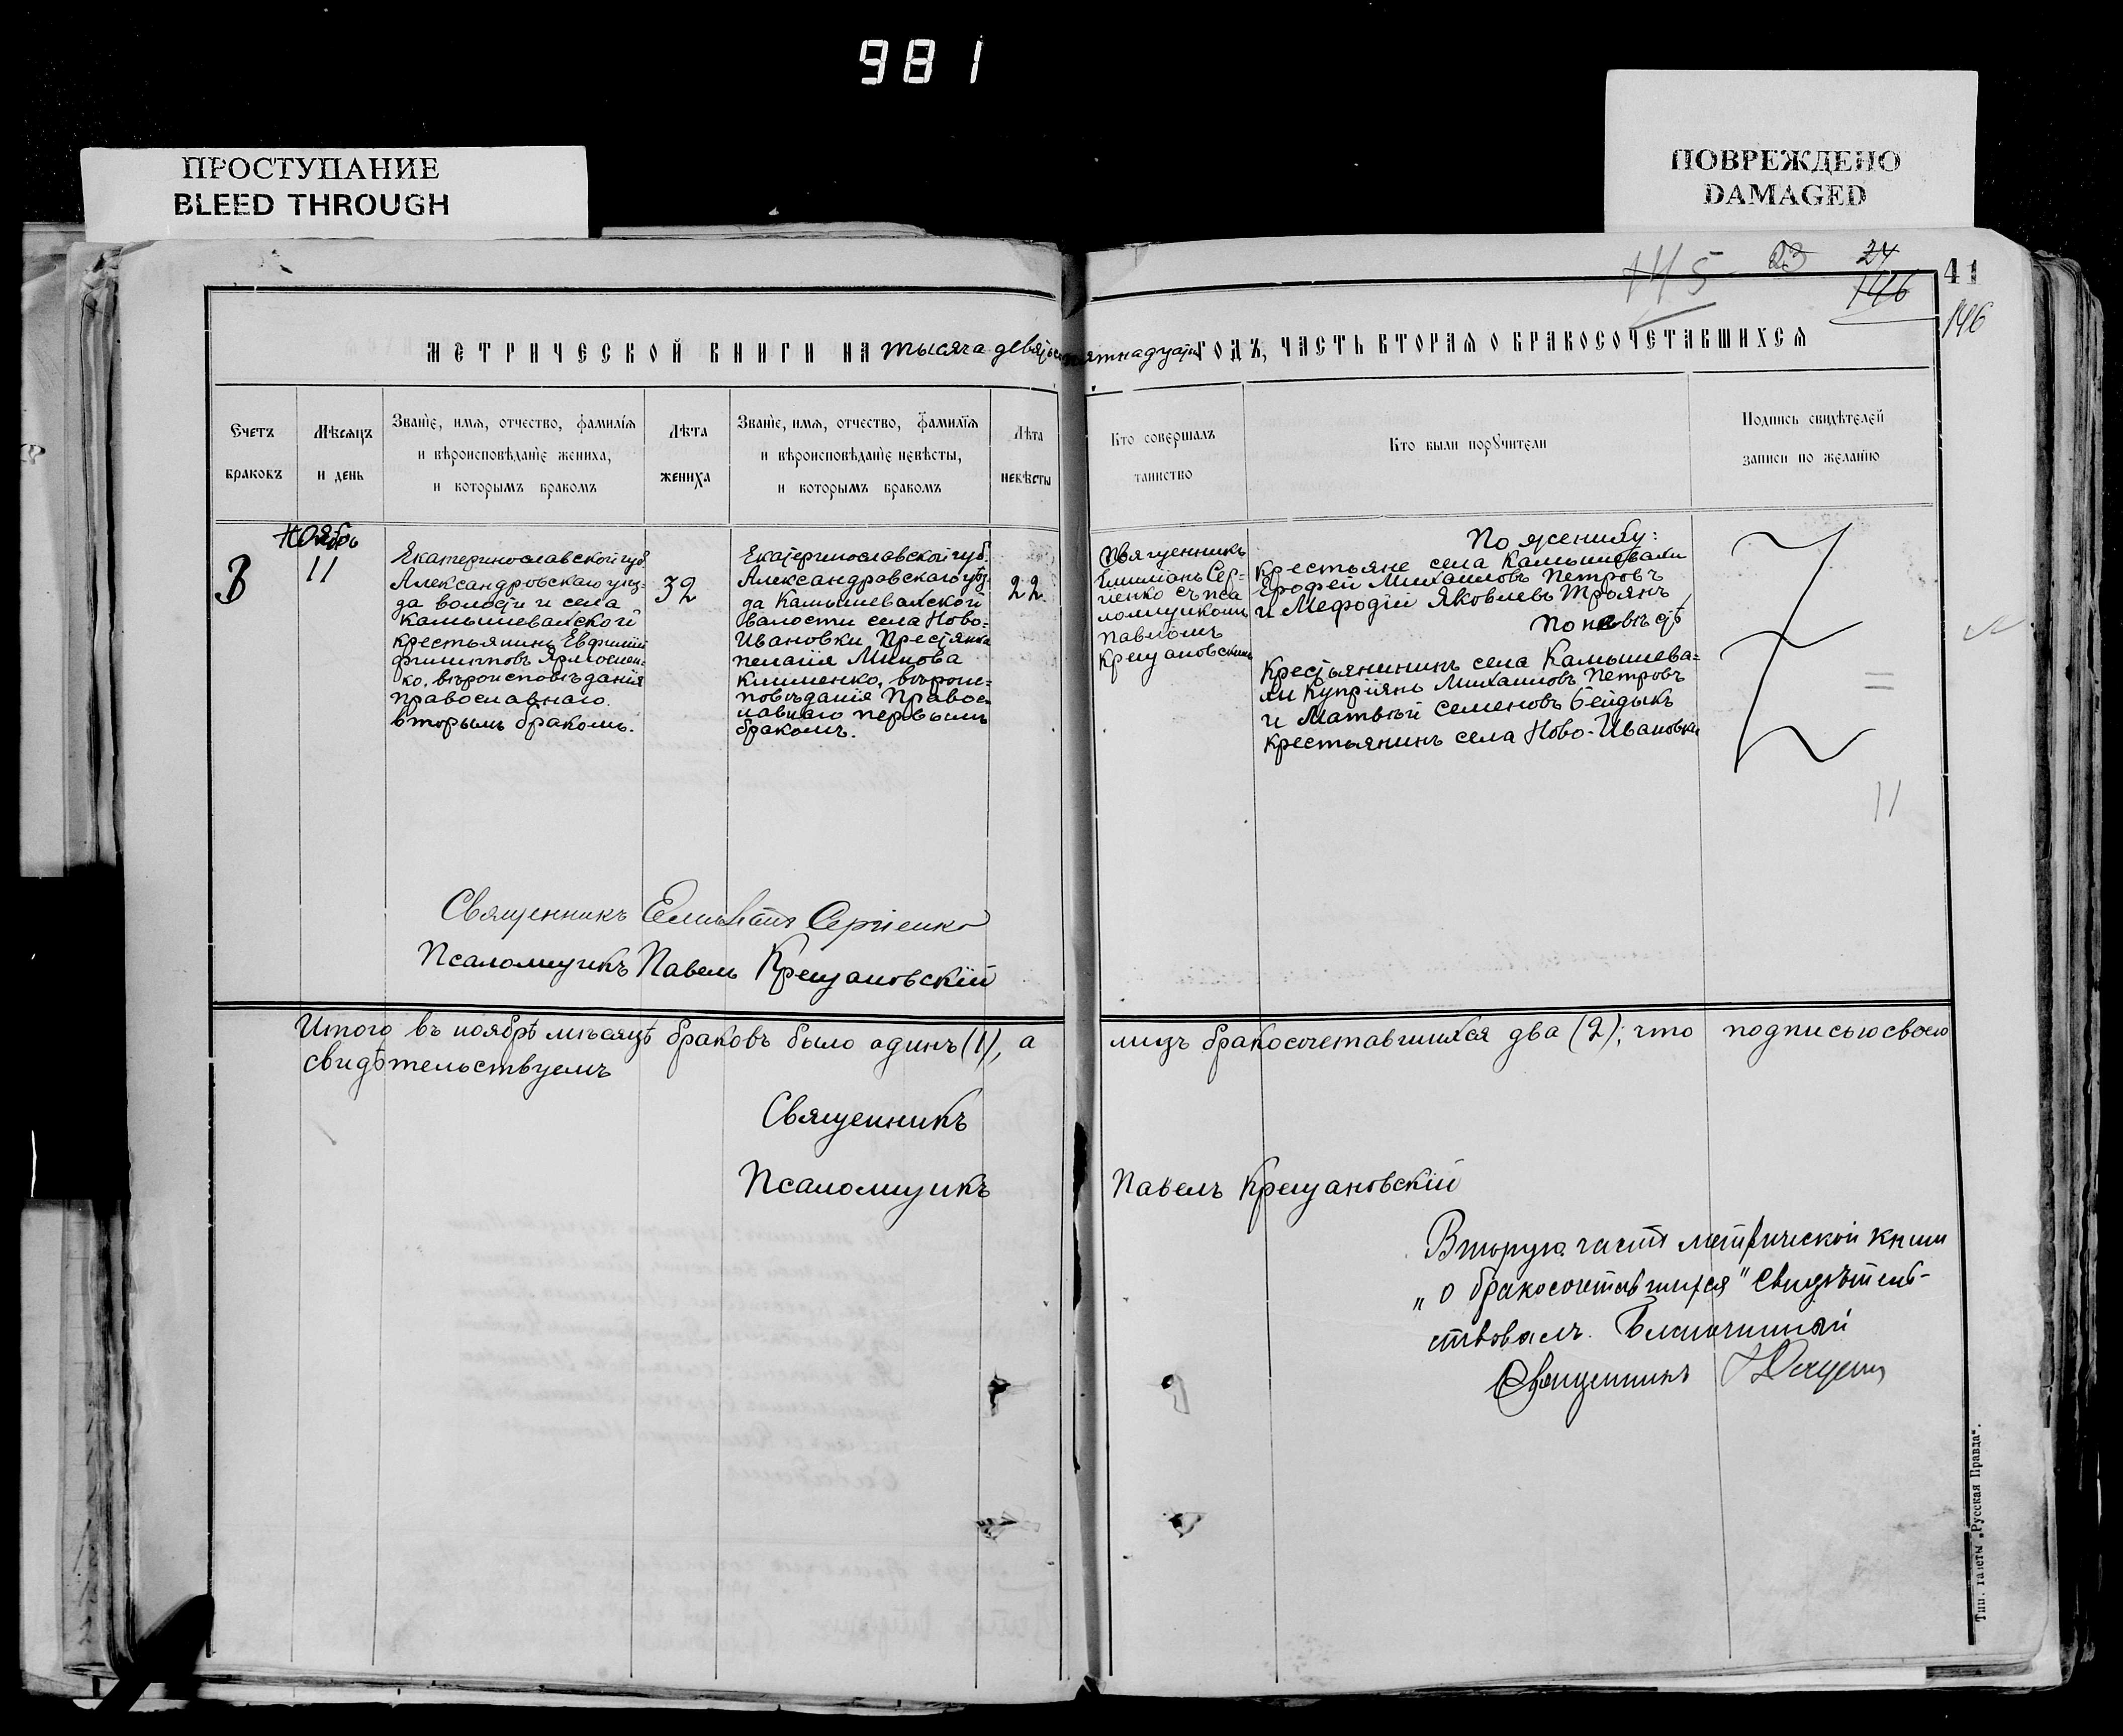 981
ПРОСТУПАНИЕ
BLEED THROUGH
ПОВРЕЖДЕНО
DAMAGED
145 23 24 41
146
146
МЕТРИЧЕСКОЙ КНИГИ НА тысяча девятьсот пятнадцатый ГОДЪ, ЧАСТЬ ВТОРАЯ О БРАКОСОЧЕТАВШИХСЯ
Счетъ браковъ
Мѣсяцъ и день
Званіе, имя, отчество, фамилія
и вѣроисповѣданіе жениха,
и которымъ бракомъ
Лѣта жениха
Званіе, имя, отчество, фамилія
и вѣроисповѣданіе невѣсты,
и которымъ бракомъ
Лѣта невѣсты
Кто совершалъ таинство
Кто были поручители
Подпись свидѣтелей
записи по желанію
Ноябрь
11
Екатеринославской губ.
Александровскаго уѣз-
да волости и села
Камышевахской
крестьянинъ Евфимій
Филипповъ
ко, вѣроисповѣданія
православнаго.
вторымъ бракомъ.
32
Екатеринославской губ.
Александровскаго уѣз-
да Камышевахской
волости села Ново-
Ивановки Крестьянка
Пелагія Минова
Клименко, вѣроис-
повѣданія Правос-
лавнаго первымъ
бракомъ.
22
Священникъ
Емиліанъ Сер-
гіенко съ пса
ломщикомъ
Павломъ
Крещановскимъ
По женихѣ:
Крестьяне села Камышевахи
Ерофей Михаиловъ Петровъ
и Мефодій Яковлевъ Троянъ
По невѣстѣ
Крестьянинъ села Камышева-
хи Купріянъ Михаиловъ Петровъ
и Матвѣй Семеновъ Бейдыкъ
крестьянинъ села Ново-Ивановки
11
Священникъ Емиліанъ Сергіенко
Псаломщикъ Павелъ Крещановскій
Итого въ ноябрѣ мѣсяцѣ браковъ было одинъ (1), а лицъ бракосочетавшихся два (2); что подписью своею
свидѣтельствуемъ
Священникъ
Псаломщикъ Павелъ Крещановскій
Вторую часть метрической книги
„о бракосочетавшихся" свидѣтель-
ствовалъ. Благочинный
Священникъ
Тип. газеты „Русская Правда".